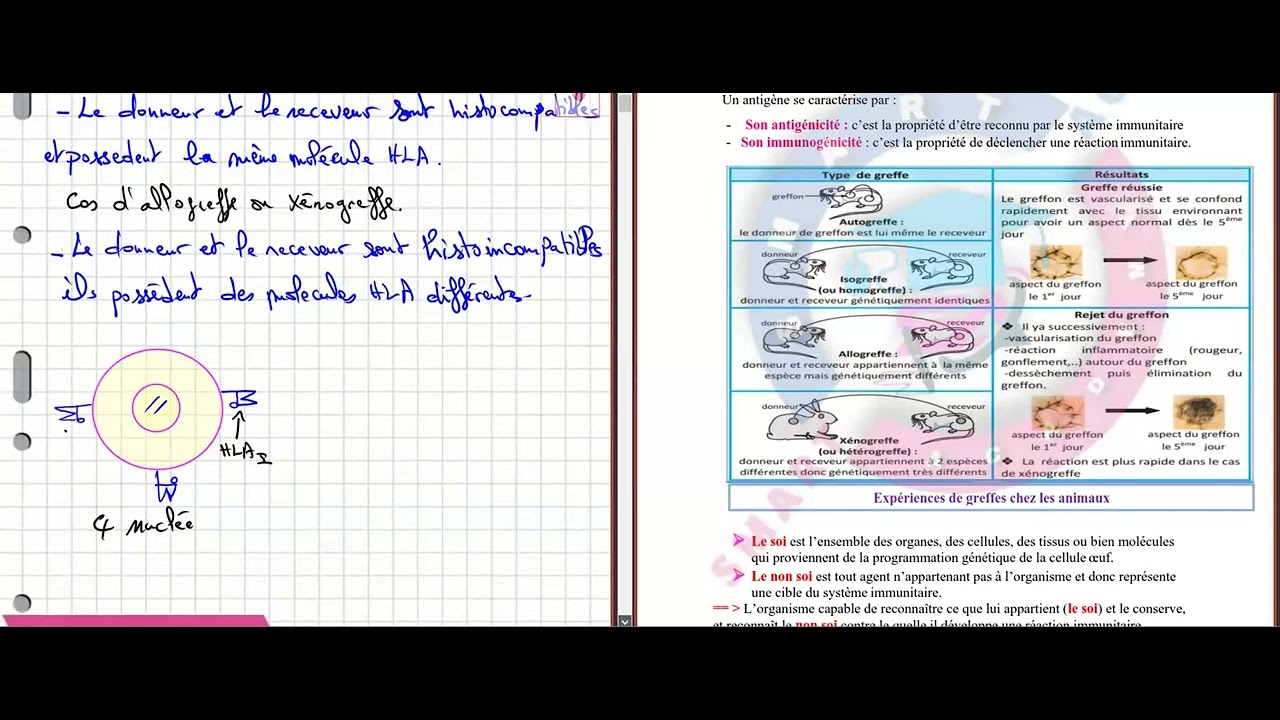 - Le donneur et le receveur sont histocompatibles
et possedent la même molécule HLA.
Cas d'allogreffe ou xénogreffe.
- Le donneur et le receveur sont histoincompatibles
ils possèdent des molécules HLA différentes.
HLA I
nuclée
Un antigène se caractérise par :
- Son antigénicité : c'est la propriété d'être reconnu par le système immunitaire
- Son immunogénicité : c'est la propriété de déclencher une réaction immunitaire.
Type de greffe
greffon
Autogreffe :
le donneur de greffon est lui même le receveur
donneur receveur
Isogreffe
(ou homogreffe) :
donneur et receveur génétiquement identiques
donneur receveur
Allogreffe :
donneur et receveur appartiennent à la même
espèce mais génétiquement différents
donneur receveur
Xénogreffe
(ou hétérogreffe) :
donneur et receveur appartiennent à 2 espèces
différentes donc génétiquement très différents
Résultats
Greffe réussie
Le greffon est vascularisé et se confond
rapidement avec le tissu environnant
pour avoir un aspect normal dès le 5ème
jour
aspect du greffon aspect du greffon
le 1er jour le 5ème jour
Rejet du greffon
❖ Il ya successivement :
-vascularisation du greffon
-réaction inflammatoire (rougeur,
gonflement,..) autour du greffon
-dessèchement puis élimination du
greffon.
aspect du greffon aspect du greffon
le 1er jour le 5ème jour
❖ La réaction est plus rapide dans le cas
de xénogreffe
Expériences de greffes chez les animaux
➢ Le soi est l'ensemble des organes, des cellules, des tissus ou bien molécules
qui proviennent de la programmation génétique de la cellule œuf.
➢ Le non soi est tout agent n'appartenant pas à l'organisme et donc représente
une cible du système immunitaire.
== > L'organisme capable de reconnaître ce que lui appartient (le soi) et le conserve,
et reconnaît le non soi contre le quelle il développe une réaction immunitaire